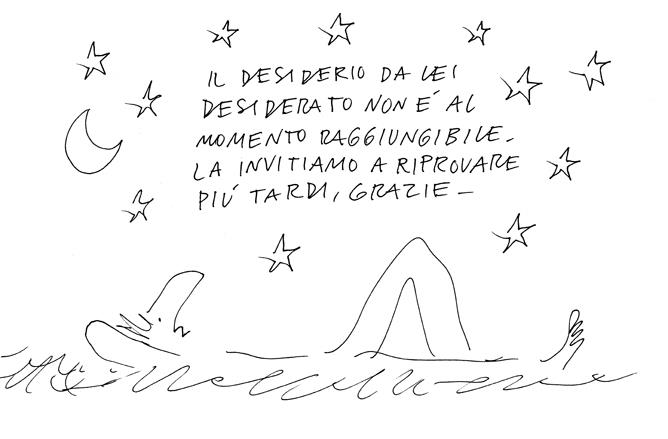 IL DESIDERIO DA LEI
DESIDERATO NON É AL
MOMENTO RAGGIUNGIBILE.
LA INVITIAMO A RIPROVARE
PIÚ TARDI, GRAZIE –